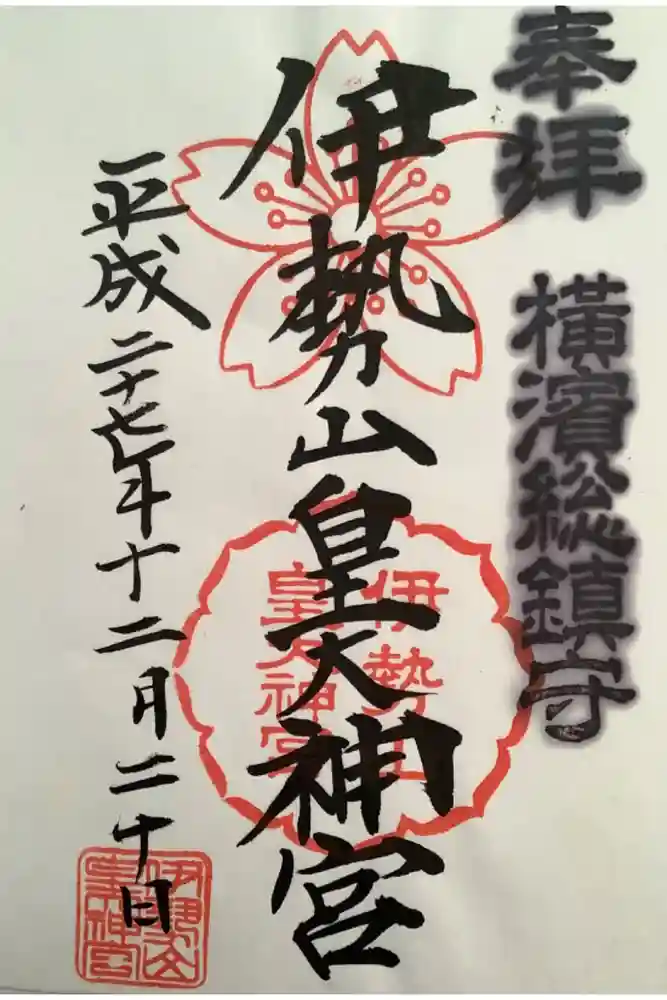 奉拝 横濱総鎮守
伊勢山皇大神宮
伊勢山
皇大神宮
平成二十七年十二月二十日